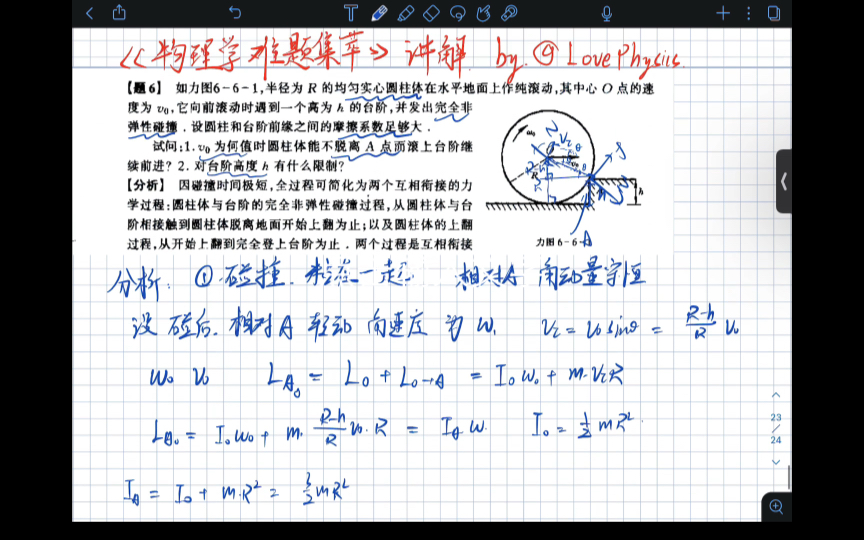 《物理学难题集萃》讲解 by. @ Love Physics
【题6】 如力图6-6-1,半径为 R 的均匀实心圆柱体在水平地面上作纯滚动,其中心 O 点的速
度为 v₀,它向前滚动时遇到一个高为 h 的台阶,并发出完全非
弹性碰撞.设圆柱和台阶前缘之间的摩擦系数足够大.
试问:1.v₀ 为何值时圆柱体能不脱离 A 点而滚上台阶继
续前进? 2.对台阶高度 h 有什么限制?
【分析】 因碰撞时间极短,全过程可简化为两个互相衔接的力
学过程:圆柱体与台阶的完全非弹性碰撞过程,从圆柱体与台
阶相接触到圆柱体脱离地面开始上翻为止;以及圆柱体的上翻
过程,从开始上翻到完全登上台阶为止.两个过程是互相衔接
力图6-6-
A
h
R
分析: ① 碰撞. 粘在一起 相对A 角动量守恒
设 碰后.相对A 转动 角速度 为 ω, v₂ = v₀ sinθ = (R-h)/R v₀
ω₀ v₀ L_A₀ = L₀ + L₀→A = I₀ω₀ + m·v₂R
L_A₀ = I₀ω₀ + m· (R-h)/R v₀·R = I_A ω. I₀ = ½ mR².
I_A = I₀ + m·R² = 3/2 mR²
23
24